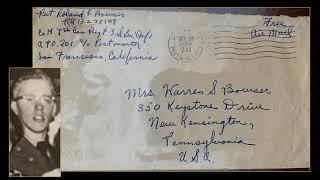 Pvt Roland P. Bowser
Co M 7th Cav Regt 3rd Bn
APO 201 c/o Postmaster
San Francisco, California
Free
Air Mail
Mrs. Warren S Bowser
350 Keystone Drive
New Kensington,
Pennsylvania
U.S.A.